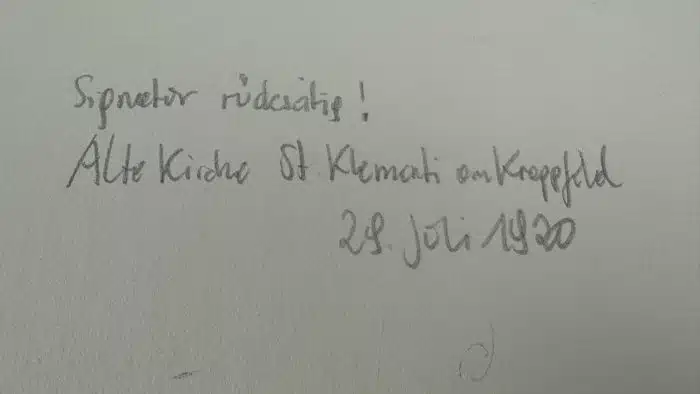 Signatur rückseitig!
Alte Kirche St. Klementi am Krappfeld
29. Juli 1920